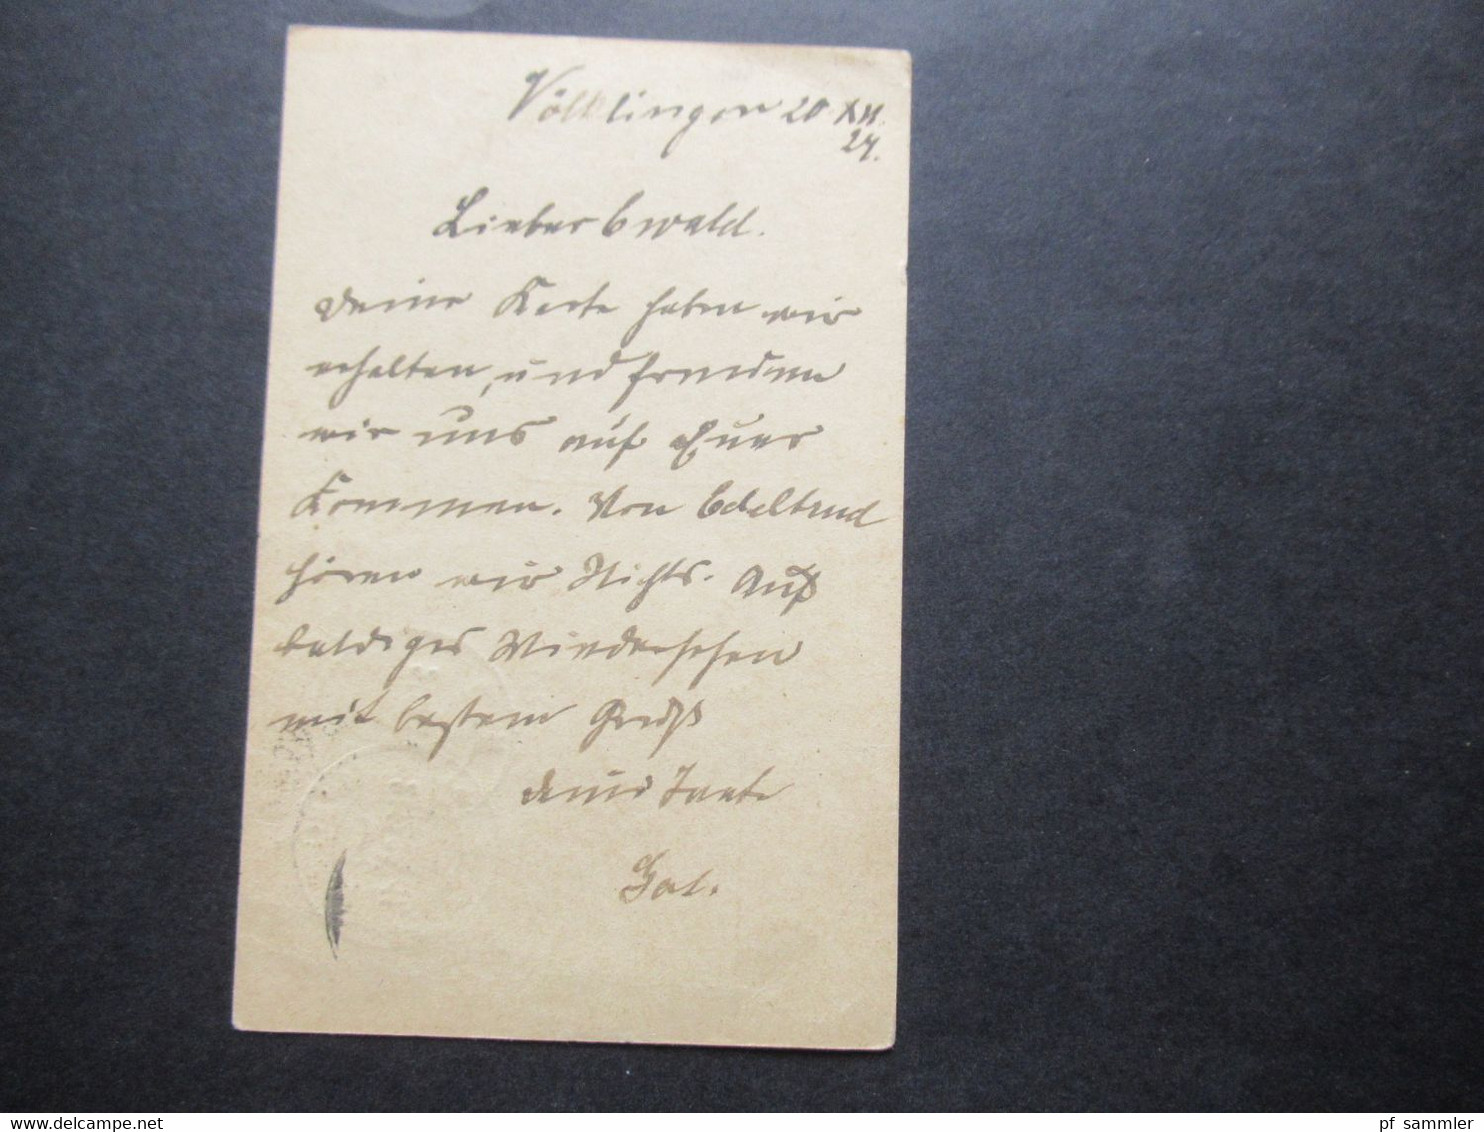 Völklingen 20 XII.
27.
Lieber Ewald.
Deine Karte haben wir
erhalten, und freuen
wir uns auf Euer
Kommen. Von Edeltrud
hören wir Nichts. Auf
baldiges Wiedersehen
mit bestem Gruß
deine Tante
delcampe.net
pf sammler